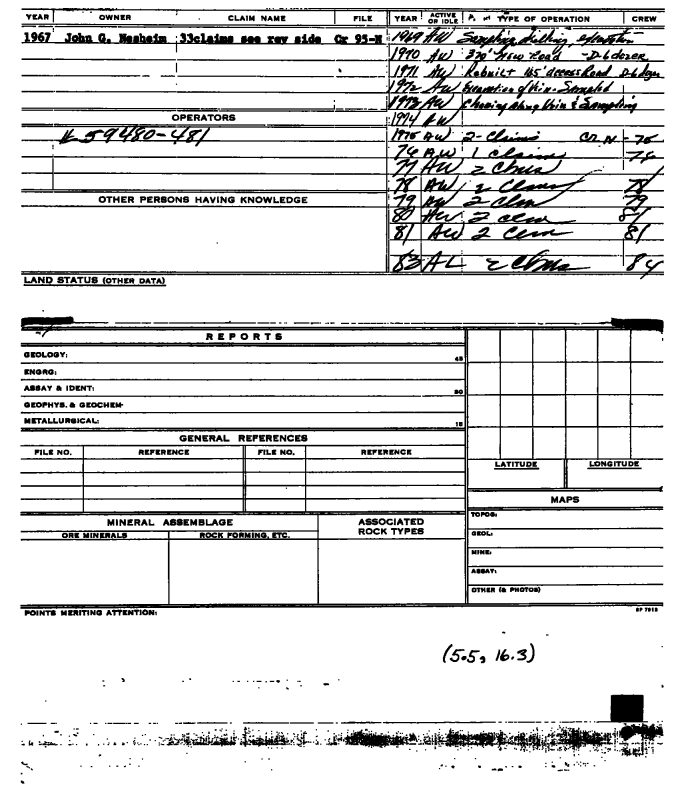 YEAR OWNER CLAIM NAME FILE YEAR ACTIVE OR IDLE TYPE OF OPERATION CREW
1967 John G. Nesheim 33claims see rev side Cr 95-N 1969 AW Sampling drilling, excavation
1970 AW 370' New Road - D-6 dozer
1971 AW Rebuilt 165' access Road D-6 dozer
1972 AW Excavation of Vein - Sampled
1973 AW Along Vein & Sampling
OPERATORS 1974 AW
59480-481 1975 AW 2 - Claims - 76
76 AW 1 Claims 78
77 AW 2 Clms
78 AW 2 Claims 78
OTHER PERSONS HAVING KNOWLEDGE 79 AW 2 clm 79
80 AW 2 clm 81
81 AW 2 clm 81
83 AL 2 Clms 84
LAND STATUS (OTHER DATA)
REPORTS
GEOLOGY: 45
ENGRG:
ASSAY & IDENT: 50
GEOPHYS. & GEOCHEM-
METALLURGICAL: 15
GENERAL REFERENCES
FILE NO. REFERENCE FILE NO. REFERENCE
LATITUDE LONGITUDE
MAPS
TOPOG:
MINERAL ASSEMBLAGE ASSOCIATED ROCK TYPES
ORE MINERALS ROCK FORMING, ETC.
GEOL:
MINE:
ASSAY:
OTHER (& PHOTOS)
POINTS MERITING ATTENTION:
(5.5, 16.3)